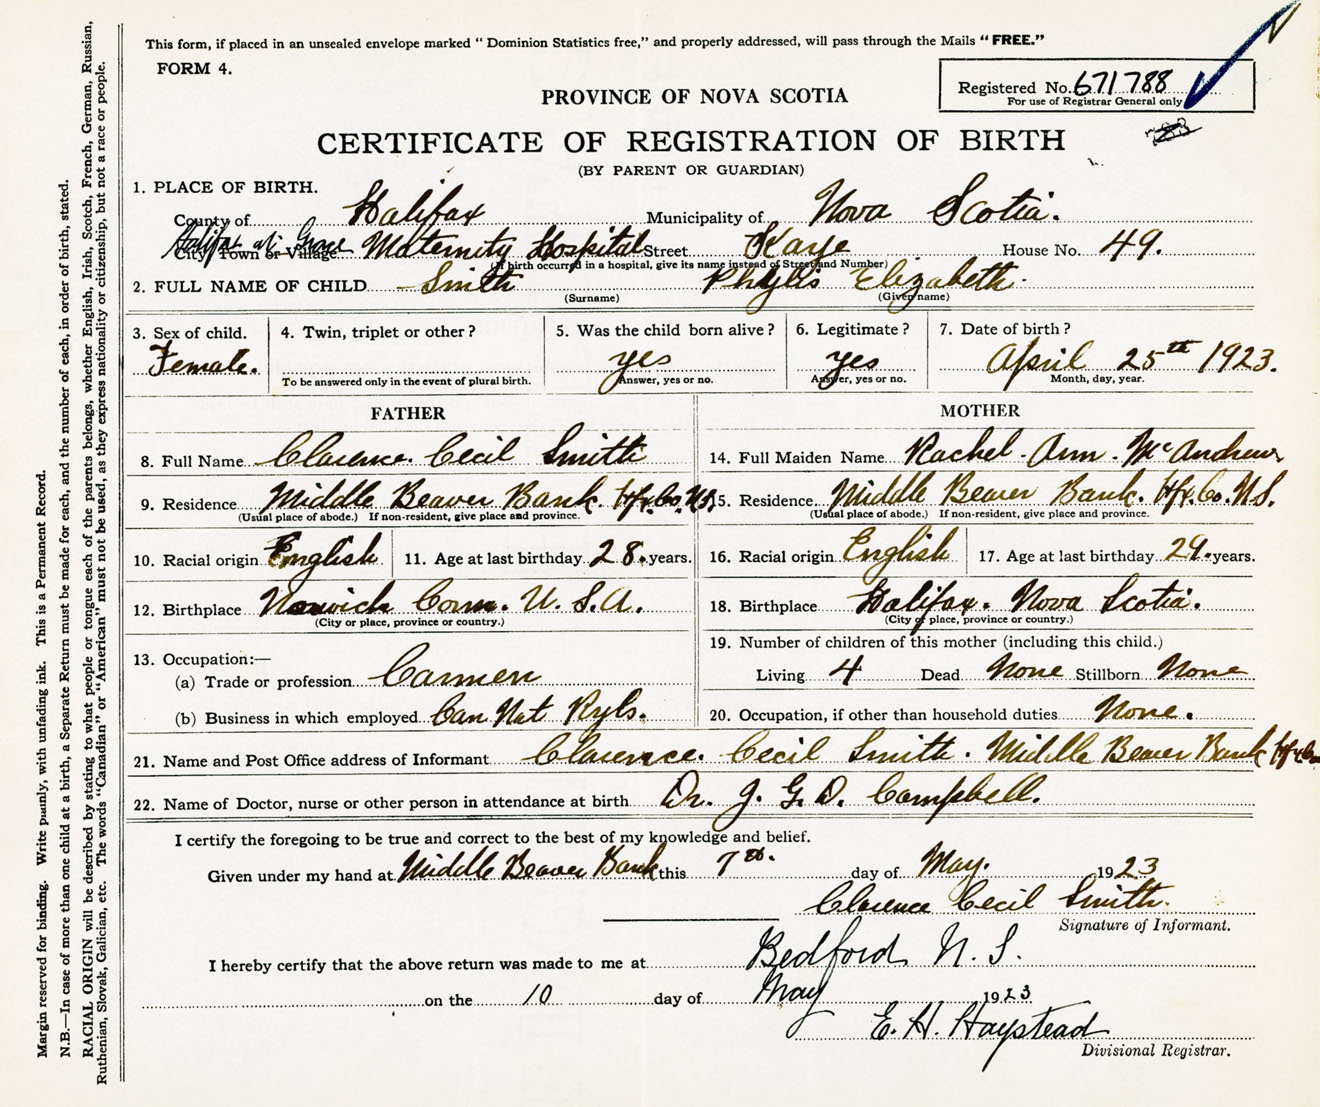 This form, if placed in an unsealed envelope marked “ Dominion Statistics free,” and properly addressed, will pass through the Mails “ FREE.”
FORM 4.
Registered No. 671788
For use of Registrar General only
PROVINCE OF NOVA SCOTIA
CERTIFICATE OF REGISTRATION OF BIRTH
(BY PARENT OR GUARDIAN)
1. PLACE OF BIRTH.
County of Halifax Municipality of Nova Scotia.
Halifax at Grace
City, Town or Village Maternity Hospital Street Kaye House No. 49.
(If birth occurred in a hospital, give its name instead of Street and Number)
2. FULL NAME OF CHILD Smith Phyllis Elizabeth.
(Surname) (Given name)
3. Sex of child. 4. Twin, triplet or other ? 5. Was the child born alive ? 6. Legitimate ? 7. Date of birth ?
Female. yes yes April 25th 1923.
To be answered only in the event of plural birth. Answer, yes or no. Answer, yes or no. Month, day, year.
FATHER MOTHER
8. Full Name Clarence Cecil Smith 14. Full Maiden Name Rachel Ann McAndrew
9. Residence Middle Beaver Bank. Hfx. Co. N.S. 15. Residence Middle Beaver Bank. Hfx. Co. N.S.
(Usual place of abode.) If non-resident, give place and province. (Usual place of abode.) If non-resident, give place and province.
10. Racial origin English 11. Age at last birthday 28. years. 16. Racial origin English 17. Age at last birthday 29. years.
12. Birthplace Norwich Conn. U.S.A. 18. Birthplace Halifax. Nova Scotia.
(City or place, province or country.) (City or place, province or country.)
13. Occupation:— 19. Number of children of this mother (including this child.)
(a) Trade or profession Carmen Living 4 Dead None Stillborn None
(b) Business in which employed Can. Nat. Ryls. 20. Occupation, if other than household duties None.
21. Name and Post Office address of Informant Clarence. Cecil Smith. Middle Beaver Bank Hfx Co
22. Name of Doctor, nurse or other person in attendance at birth Dr. J. G. D. Campbell.
I certify the foregoing to be true and correct to the best of my knowledge and belief.
Given under my hand at Middle Beaver Bank this 7th. day of May. 1923
Clarence Cecil Smith.
Signature of Informant.
I hereby certify that the above return was made to me at Bedford N. S.
on the 10 day of May 1923
E. H. Haystead
Divisional Registrar.
Margin reserved for binding. Write plainly, with unfading ink. This is a Permanent Record.
N.B.—In case of more than one child at a birth, a Separate Return must be made for each, and the number of each, in order of birth, stated.
RACIAL ORIGIN will be described by stating to what people or tongue each of the parents belongs, whether English, Irish, Scotch, French, German, Russian,
Ruthenian, Slovak, Galician, etc. The words “Canadian” or “American” must not be used, as they express nationality or citizenship, but not a race or people.